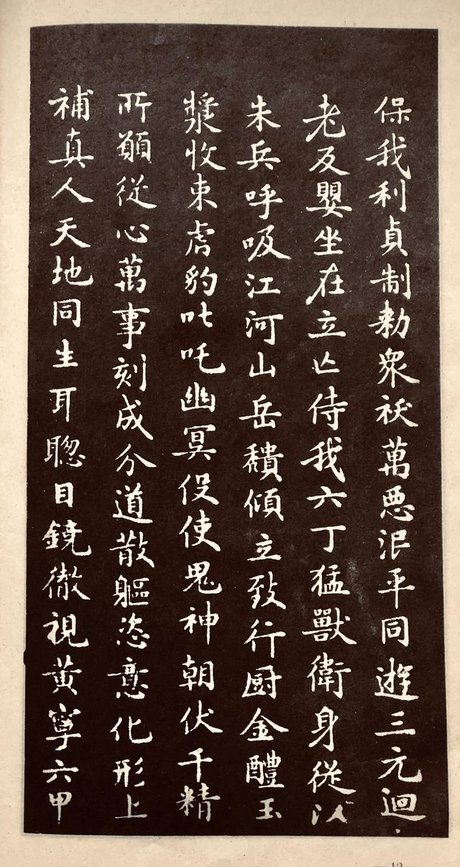 保我利貞制勑衆祅萬惡泯平同遊三元迴
老反嬰坐在立亡侍我六丁猛獸衛身從以
朱兵呼吸江河山岳穨傾立致行厨金醴玉
漿收束虎豹叱吒幽冥役使鬼神朝伏千精
所願從心萬事刻成分道散軀恣意化形上
補真人天地同生耳聰目鏡徹視黃寧六甲